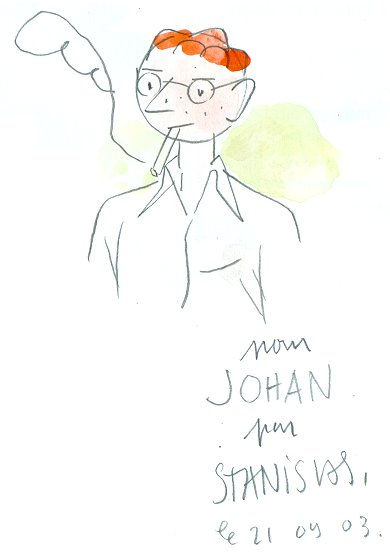 pour
JOHAN
par
STANISLAS,
le 21 09 03.